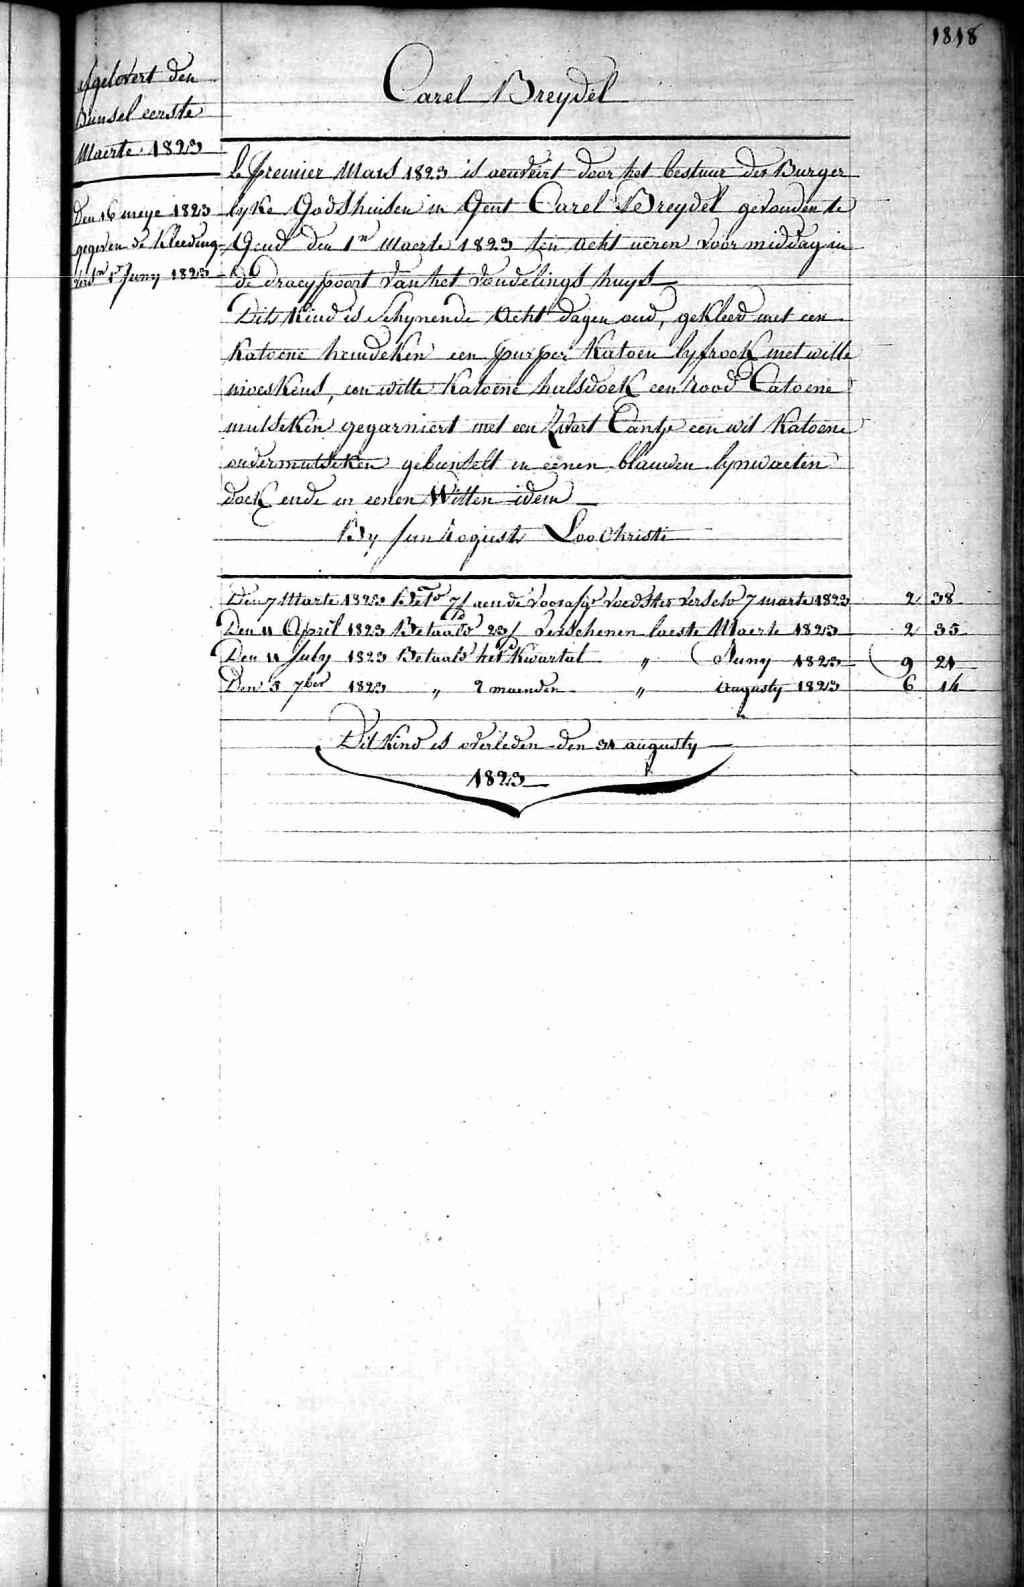 1818
Carel Breydel
afgelevert den
Bunsel eerste
Maerte 1823
Den 16 meye 1823
gegeven de Kleeding
1r Juny 1823
Le premier Mars 1823 is aenveirt door het bestuur der Burger
lyke Godshuisen in Gent Carel Breydel gevonden te
Gend den 1n Maerte 1823 ten acht ueren voormiddag in
de draeypoort van het vondelings huys
Dits Kind is Schynende Acht dagen oud, gekleed met een
Katoene hemdeken een purper Katoen lyfrock met witte
moeskens, een witte Katoene halsdoek een rood Catoene
mutseken gegarniert met een Zwart Cantje een wit Katoene
ondermutseken gebunselt in eenen blauwen lynwaeten
doek ende in eenen Witten idem
By Loo Christi
Den 7 Marte 1823 aen de voorafge voedster versch 7 marte 1823 2 38
Den 11 April 1823 Betaald 23/ verschenen laeste Maerte 1823 2 35
Den 11 July 1823 Betaald het Kwartal " Juny 1823 9 21
Den 3 7ber 1823 " 2 maenden " Augusty 1823 6 14
Dit Kind is overleden den 31 augusty
1823